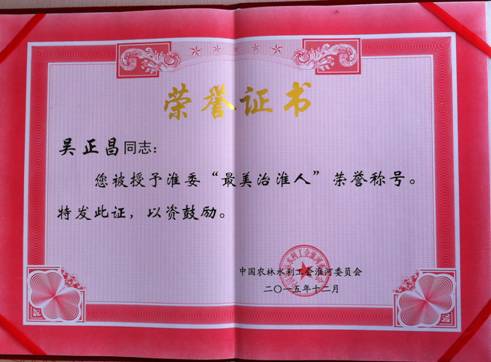 荣誉证书
吴正昌同志：
您被授予淮委“最美治淮人”荣誉称号。
特发此证，以资鼓励。
中国农林水利工会淮河委员会
二〇一五年十二月